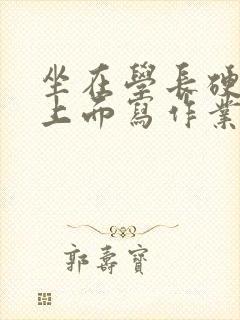 坐在學長硬
上而寫作業
郭壽寶